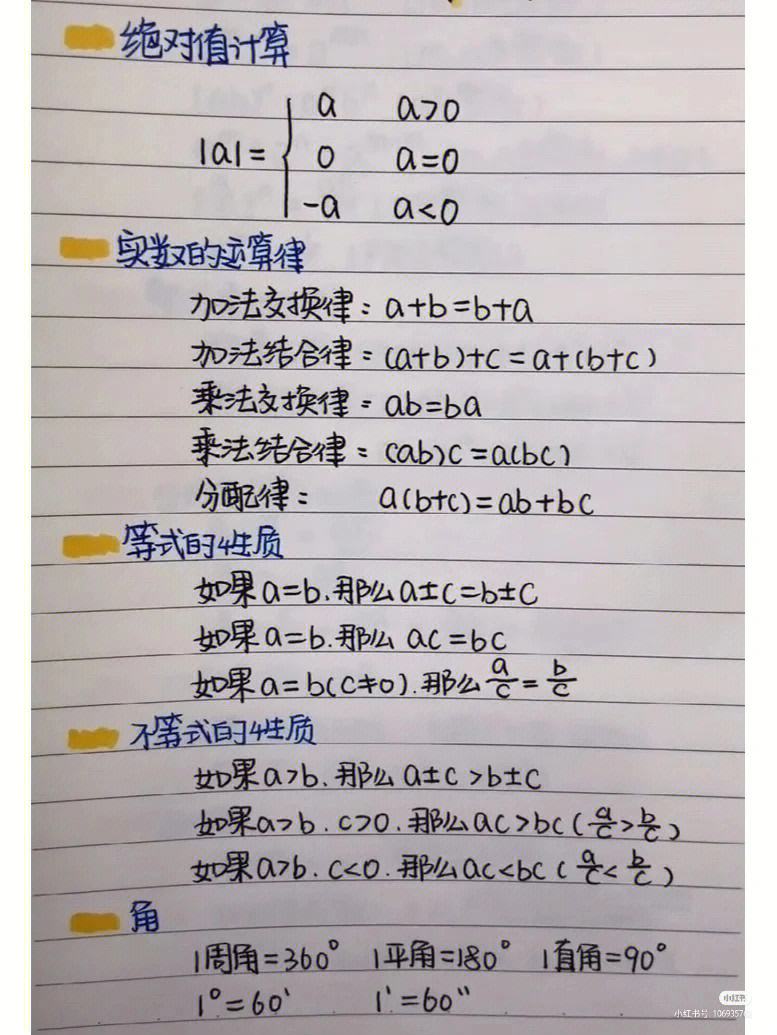 绝对值计算
a a>0
|a|= { 0 a=0
-a a<0
实数的运算律
加法交换律：a+b=b+a
加法结合律：(a+b)+c=a+(b+c)
乘法交换律：ab=ba
乘法结合律：(ab)c=a(bc)
分配律： a(b+c)=ab+bc
等式的性质
如果a=b.那么a±c=b±c
如果a=b.那么 ac=bc
如果a=b(c≠0).那么a/c=b/c
不等式的性质
如果a>b.那么a±c>b±c
如果a>b.c>0.那么ac>bc(a/c>b/c)
如果a>b.c<0.那么ac<bc(a/c<b/c)
角
1周角=360° 1平角=180° 1直角=90°
1°=60′ 1′=60″
小红书
小红书号